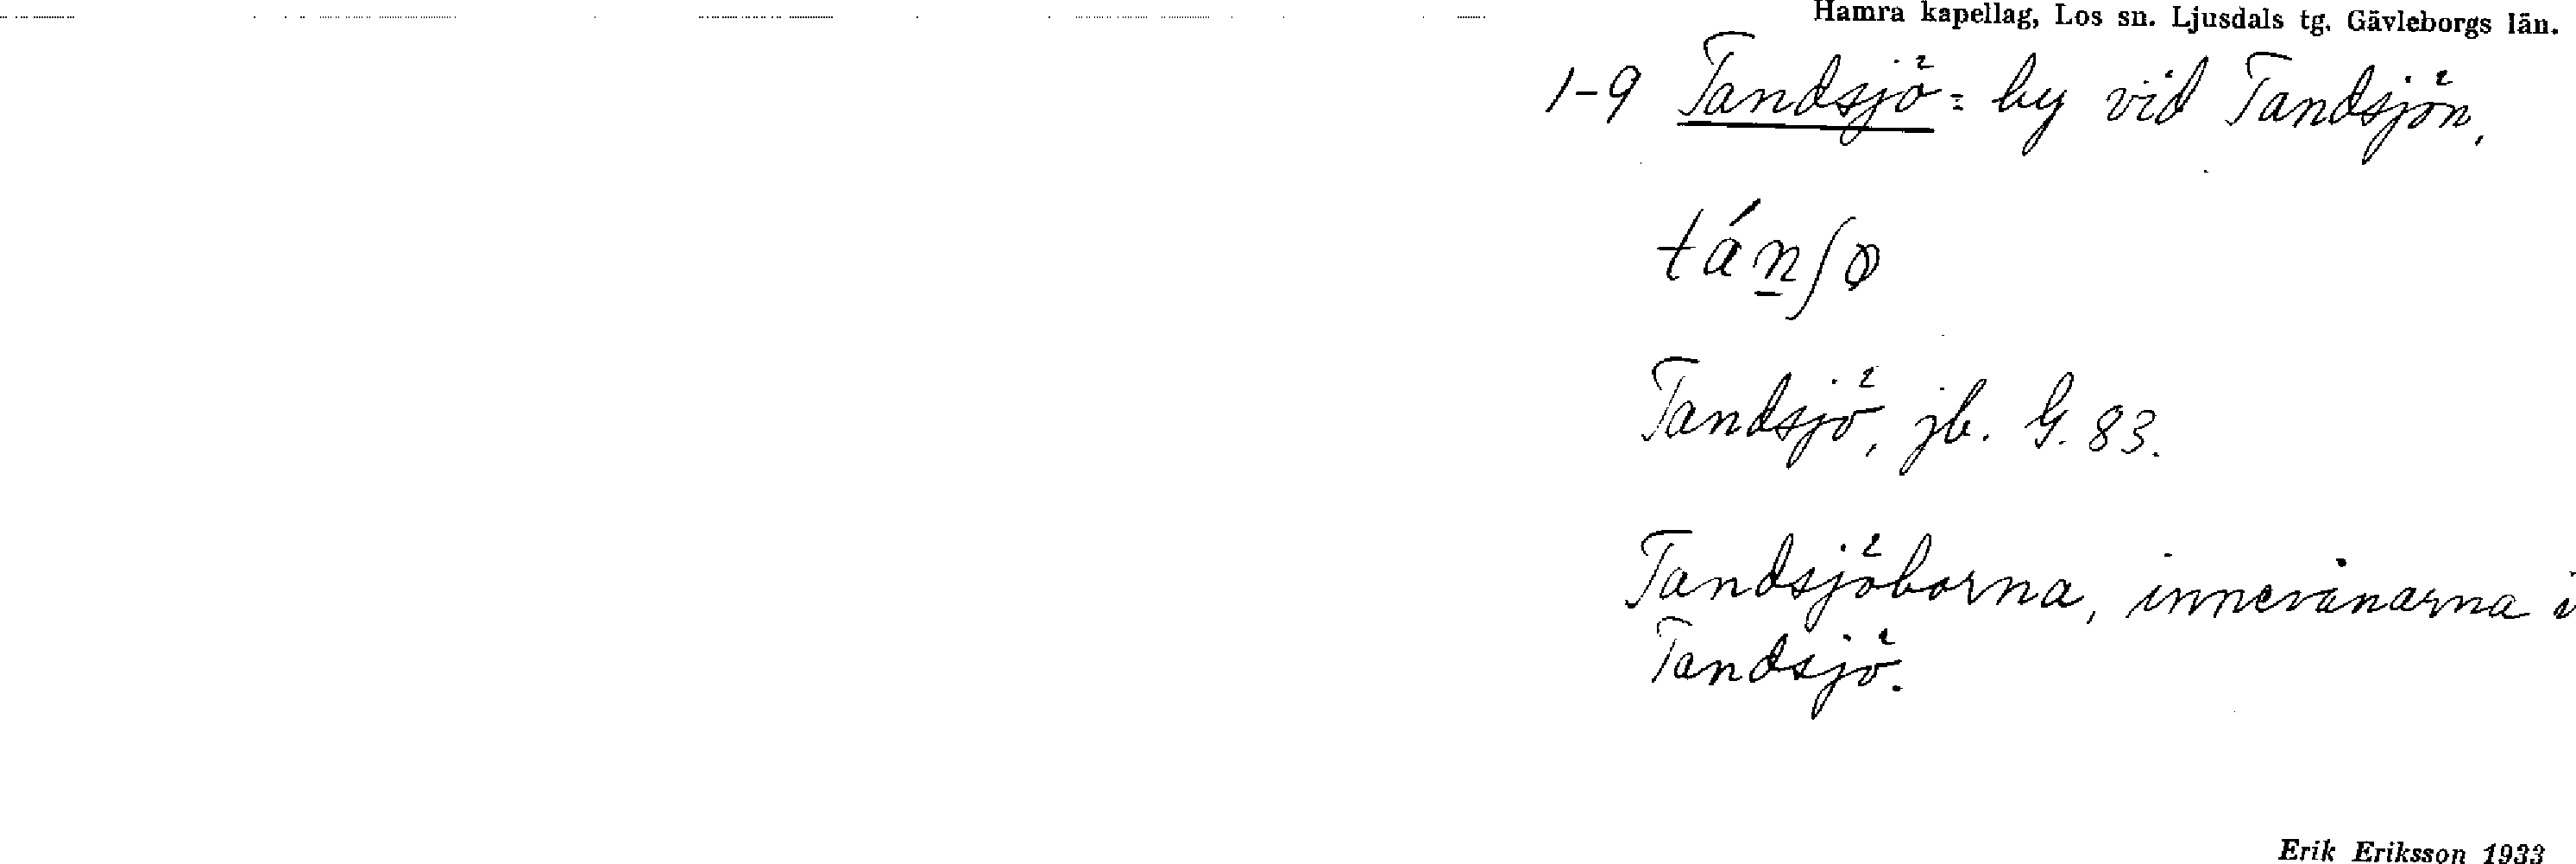 Hamra kapellag, Los sn. Ljusdals tg. Gävleborgs län.
1-9 Tandsjö = by vid Tandsjön,
tánʃø
Tandsjö, jb. G. 83.
Tandsjöborna, innevånarna i
Tandsjö.
Erik Eriksson 1933